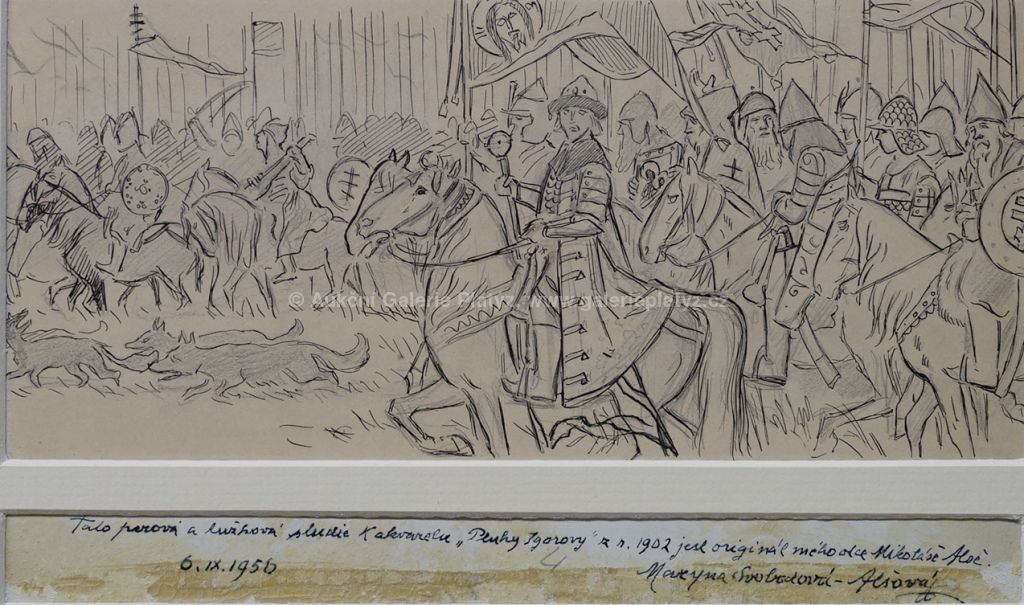 © Aukční Galerie Platýz, www.galerieplatyz.cz
Tato perová a tužková studie k akvarelu „Pluky Igorovy" z r. 1902 jest originál mého otce Mikoláše Alše.
6.IX.1956
Maryna Svobodová - Alšová